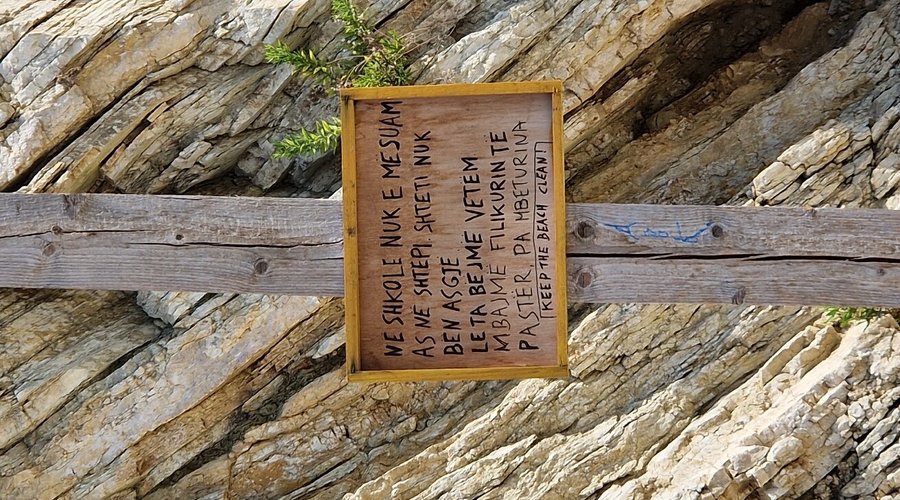 NE SHKOLE NUK E MËSUAM
AS NË SHTEPI. SHTETI NUK
BEN ASGJE
LE TA BEJME VETËM
MBAJMË FILIKURIN TË
PASTËR, PA MBETURINA
KEEP THE BEACH CLEAN!